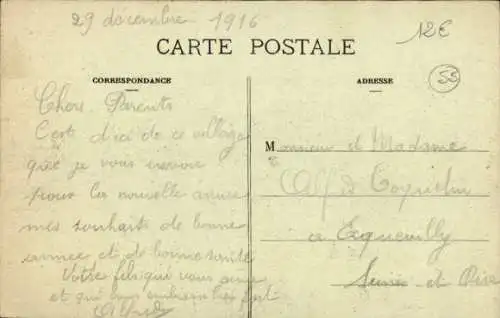 29 décembre 1916
12€
CARTE POSTALE
55
CORRESPONDANCE
ADRESSE
Chers Parents
C'est d'ici de ce village
que je vous envoie
pour la nouvelle année
mes souhaits de bonne
année et de bonne santé
Votre fils qui vous aime
et qui vous embrasse bien fort
Alfred
Monsieur et Madame
Alfred
a Ecquevilly
Seine et Oise